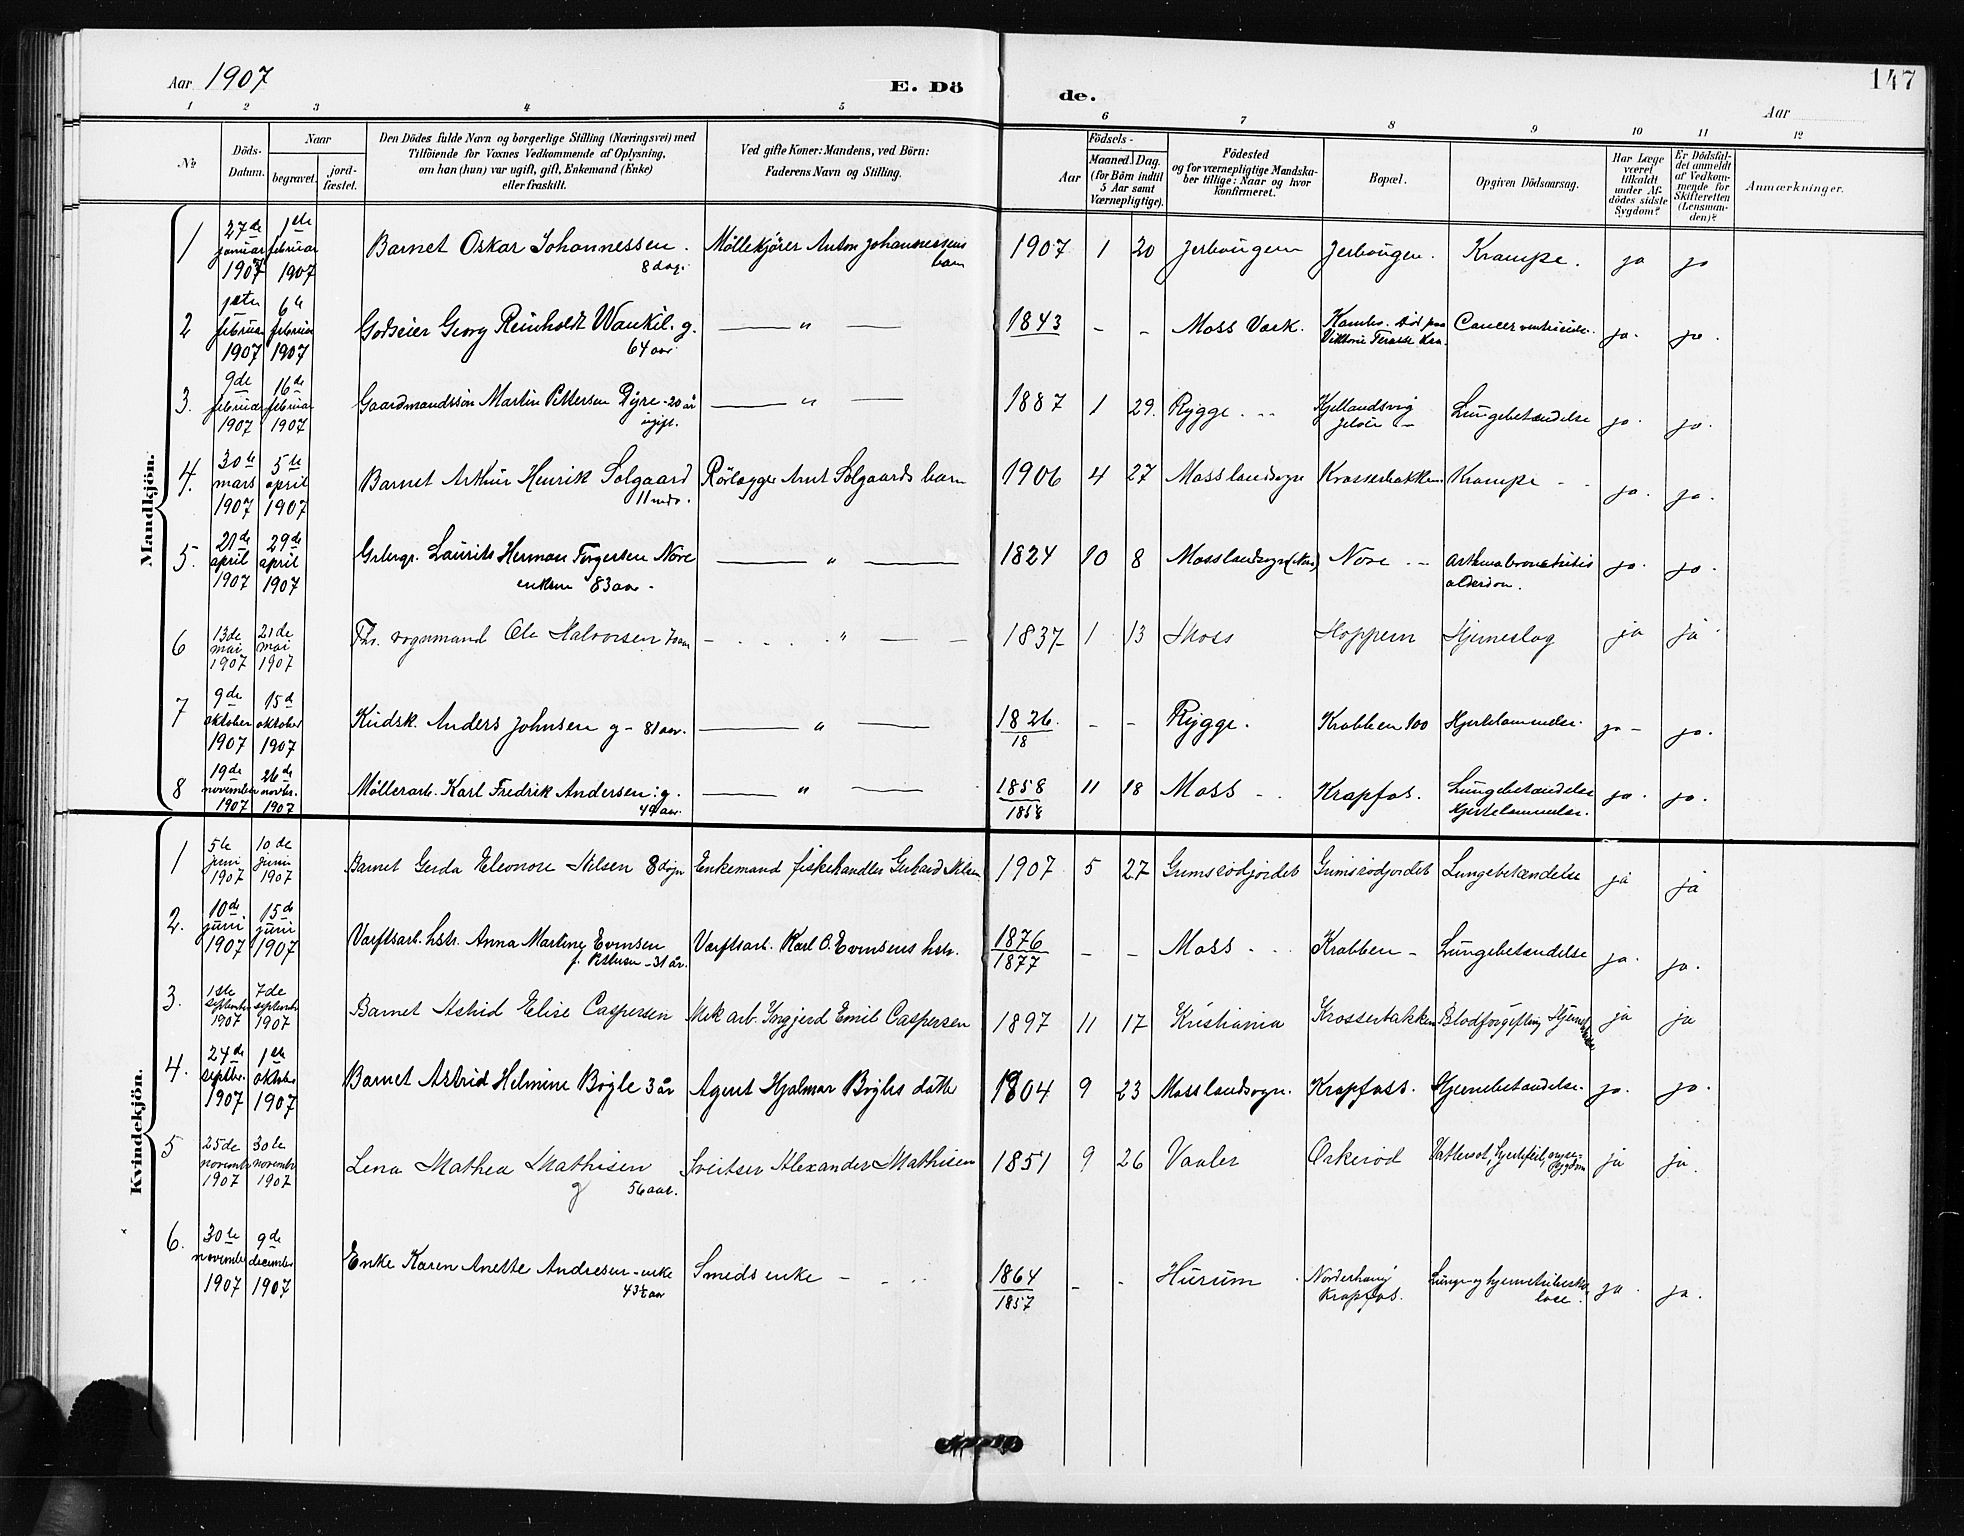 Aar 1907
E. Dö
de.
147
Aar
1 2 3 4 5 6 7 8 9 10 11 12
No
Döds-Datum.
Naar
begravet.
jord-fæstet.
Den Dödes fulde Navn og borgerlige Stilling (Næringsvei) med
Tilföiende for Voxnes Vedkommende af Oplysning,
om han (hun) var ugift, gift, Enkemand (Enke)
eller fraskilt.
Ved gifte Koner: Mandens, ved Börn:
Faderens Navn og Stilling.
Födsels-
Aar
Maaned. Dag.
(for Börn indtil
5 Aar samt
Værnepligtige).
Födested
og for værnepligtige Mandska-
ber tillige: Naar og hvor
konfirmeret.
Bopæl.
Opgiven Dödsaarsag.
Har Læge
været
tilkaldt
under Af-
dödes sidste
Sygdom?
Er Dödsfal-
det anmeldt
af Vedkom-
mende for
Skifteretten
(Lensman-
den)?
Anmærkninger.
Mandkjön.
1 27de januar 1907 1ste februar 1907 Barnet Oskar Johannessen. 8 dage Møllekjører Anton Johannessens barn 1907 1 20 Jerbougen Jerbougen. Krampe. ja ja
2 1ste februar 1907 6te februar 1907 Godseier Georg Reinholdt Wankel. g. 64 aar. — " — 1843 - - Moss Værk. Kambo. død paa Viktoria Terasse Kra. Cancer ventriculi. ja. ja.
3. 9de februar 1907 16de februar 1907 Gaardmandssøn Martin Pettersen Dyre - 20 år ugift. — " — 1887 1 29. Rygge. Kjellandsvig Jeløen Lungebetændelse ja. ja.
4. 30te mars 1907 5te april 1907 Barnet Arthur Henrik Solgaard 11 mdr. Rørlægger Arnt Solgaards barn 1906 4 27 Moss landsogn Krosserbakken Krampe ja. ja.
5. 21de april 1907 29de april 1907 Laurits Herman Torgersen Nore enkem 83 aar — " — 1824 10 8 Moss landsogn Nore Asthma bronchitis alderdom. ja. ja.
6 13de mai 1907 21de mai 1907 Fhv. vognmand Ole Halvorsen 70 aar — " — 1837 1 13 Moss Hoppern Hjerneslag ja ja
7 9de oktober 1907 15d oktober 1907 Kudsk. Anders Johnsen g - 81 aar. — " — 1826 18 - - Rygge. Krabben 100 Hjertelammelse. ja - ja.
8 19de november 1907 26de novbr. 1907 Møllerarb. Karl Fredrik Andersen: g. 49 aar. — " — 1858 1858 11 18 Moss Krapfos. Lungebetændelse Hjertelammelse. ja. ja.
Kvindekjön.
1 5te juni 1907 10de juni 1907 Barnet Gerda Eleonore Nilsen 8 døgn Enkemand fiskehandler Gerhard Nilsen 1907 5 27 Grimsrødjordet Grimsrødjordet Lungebetændelse ja ja
2. 10de juni 1907 15d juni 1907 Værftsarb. hstr. Anna Martine Evensen f. Pettersen - 31 år. Værftsarb. Karl O. Evensens hstr. 1876 1877 - - Moss Krabben - Lungebetændelse ja. ja.
3. 1ste september 1907 7de september 1907 Barnet Astrid Elise Caspersen Mek arb. Ingjerd Emil Caspersen 1897 11 17 Kristiania Krosserbakken Blodforgiftning ja ja
4. 24de septbr. 1907 1ste oktober 1907 Barnet Astrid Helmine Bøgle 3 år Agent Hjalmar Bøgles datter 1904 9 23 Moss landsogn. Krapfoss. Hjernebetændelse. ja. ja.
5 25de november 1907 30te november 1907 Lena Mathea Mathisen g 56 aar. Sveitser Alexander Mathisen 1851 9 26 Vaaler Orkerød Vattersot, hjertefeil, nyre-sygdom ja ja.
6. 30te november 1907 9de december 1907 Enke Karen Anette Andresen - enke 43½ aar Smeds enke - 1864 1857 - - Hurum Norderhaug Krapfos. Lunge- og hjernetuberkulose. ja. ja.